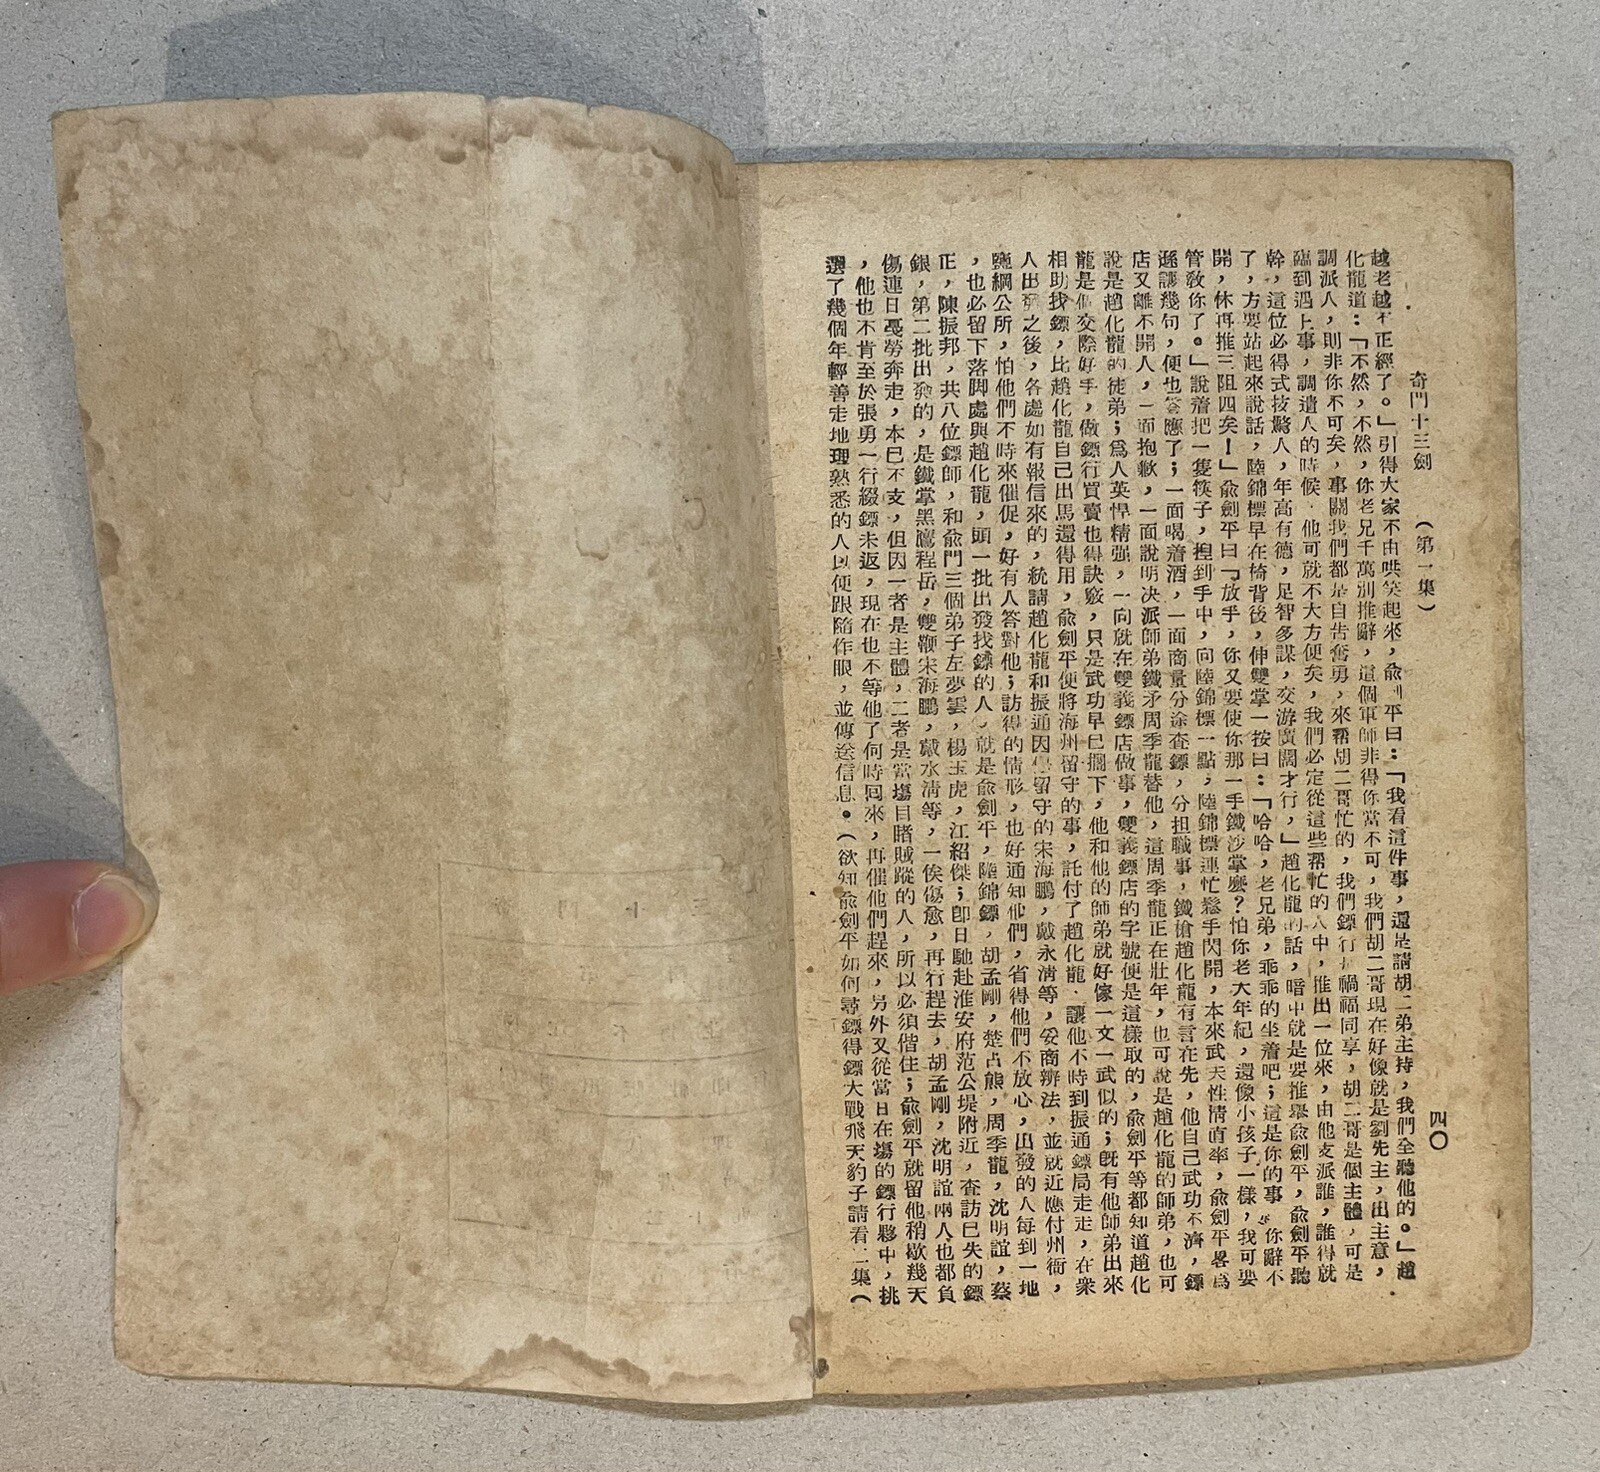 奇門十三劍　（第一集）　四〇
越老越不正經了。」引得大家不由哄笑起來，俞平曰：「我看這件事，還是請胡二弟主持，我們全聽他的。」趙
化龍道：「不然，不然，你老兄千萬別推辭，這個軍師非得你當不可，我們胡二哥現在好像就是劉先主，出主意，
調派人，則非你不可矣，事關我們都是自告奮勇，來帮胡二哥忙的，我們鏢行禍福同享，胡二哥是個主體，可是
臨到遇上事，調遣人的時候，他可就不大方便矣，我們必定從這些帮忙的人中，推出一位來，由他支派誰，誰得就
幹，這位必得式技驚人，年高有德，足智多謀，交游廣闊才行，」趙化龍的話，暗中就是要推舉俞劍平，俞劍平聽
了，方要站起來說話，陸錦標早在椅背後，伸雙掌一按曰：「哈哈，老兄弟，乖乖的坐着吧；這是你的事，你辭不
開，休再推三阻四矣！」俞劍平曰「放手，你又要使你那一手鐵沙掌麼？怕你老大年紀，還像小孩子一樣，我可要
管教你了。」說着把一隻筷子，揑到手中，向陸錦標一點，陸錦標連忙鬆手閃開，本來武夫性情直率，俞劍平畧爲
遜讓幾句，便也答應了；一面喝着酒，一面商量分途查鏢，分担職事，鐵槍趙化龍有言在先，他自己武功不濟，鏢
店又離不開人，一面抱歉，一面說明决派師弟鐵矛周季龍替他，這周季龍正在壯年，也可說是趙化龍的師弟，也可
說是趙化龍的徒弟；爲人英悍精强，一向就在雙義鏢店做事，雙義鏢店的字號便是這樣取的，俞劍平等都知道趙化
龍是個交際好手，做鏢行買賣也得訣竅，只是武功早已擱下，他和他的師弟就好像一文一武似的；旣有他師弟出來
相助找鏢，比趙化龍自己出馬還得用，俞劍平便將海州留守的事，託付了趙化龍，讓他不時到振通鏢局走走，在衆
人出發之後，各處如有報信來的，統請趙化龍和振通因傷留守的宋海鵬，戴永清等，妥商辨法，並就近應付州衙，
鹽綱公所，怕他們不時來催促，好有人答對他；訪得的情形，也好通知他們，省得他們不放心，出發的人每到一地
，也必留下落脚處與趙化龍，頭一批出發找鏢的人，就是俞劍平，陸錦鏢，胡孟剛，楚占熊，周季龍，沈明誼，蔡
正，陳振邦，共八位鏢師，和俞門三個弟子左夢雲，楊玉虎，江紹傑；卽日馳赴淮安府范公堤附近，查訪已失的鏢
銀，第二批出發的，是鐵掌黑鷹程岳，雙鞭宋海鵬，戴永清等，一俟傷愈，再行趕去，胡孟剛，沈明誼兩人也都負
傷連日憂勞奔走，本已不支，但因一者是主體，二者是當場目賭賊蹤的人，所以必須偕住；俞劍平就留他稍歇幾天
，他也不肯至於張勇一行綴鏢未返，現在也不等他了何時回來，再催他們趕來，另外又從當日在塲的鏢行夥中，挑
選了幾個年輕善走地理熟悉的人以便跟隨作眼，並傳送信息。（欲知俞劍平如何尋鏢得鏢大戰飛天豹子請看二集（